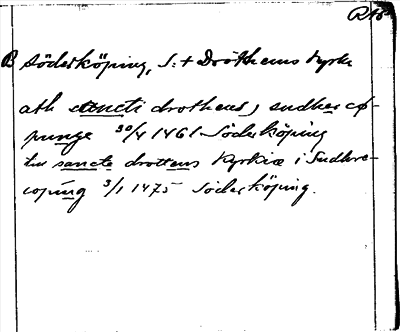 R16
B Söderköping, S:t Drothems kyrka
ath sancti drothens, sudhercø-
punge 30/4 1461 Söderköping
sancte drottens kyrkia i Sudhre-
coping 3/1 1475 Söderköping.